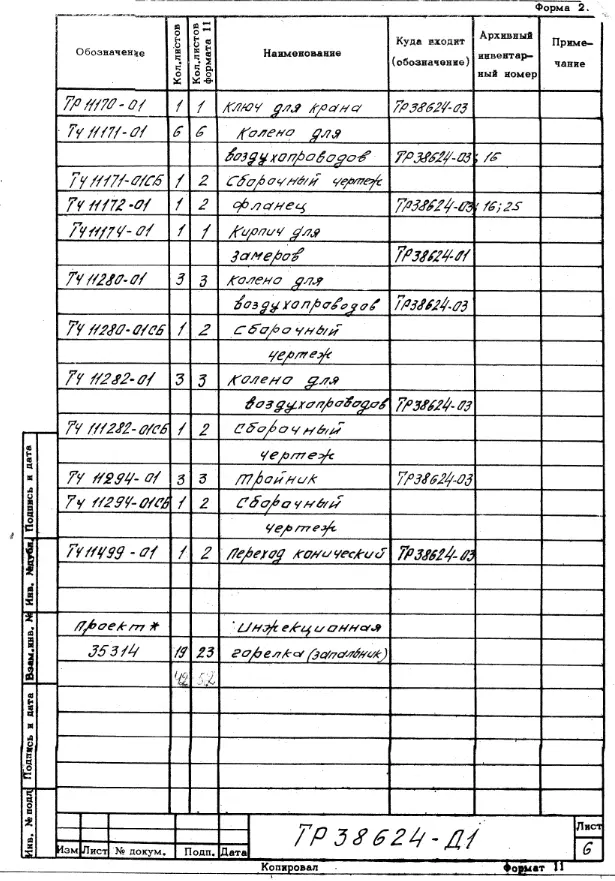 Форма 2.
Обозначение Кол.листов Кол.листов формата 11 Наименование Куда входит (обозначение) Архивный инвентар- ный номер Приме- чание
ТР 11170-01 1 1 Ключ для крана ТР38624-03
ТЧ 11171-01 6 6 Колено для
воздухопроводов ТР38624-03; 16
ТЧ 11171-01СБ 1 2 Сборочный чертеж
ТЧ 11172-01 1 2 Фланец ТР38624-03; 16; 25
ТЧ 11174-01 1 1 Кирпич для
замеров ТР38624-01
ТЧ 11280-01 3 3 Колено для
воздухопроводов ТР38624-03
ТЧ 11280-01СБ 1 2 Сборочный
чертеж
ТЧ 11282-01 3 3 Колено для
воздухопроводов ТР38624-03
ТЧ 111282-01СБ 1 2 Сборочный
чертеж
ТЧ 11294-01 3 3 Тройник ТР38624-03
ТЧ 11294-01СБ 1 2 Сборочный
чертеж
ТЧ 11499-01 1 2 Переход конический ТР38624-03
Проект *  Инжекционная
35314 19 23 горелка (запальник)
42 52
Подпись и дата
Инв. №дубл.
Взам.инв. №
Подпись и дата
Инв. №подл
Изм Лист № докум. Подп. Дата
ТР 38624-Д1
Лист
6
Копировал Формат 11